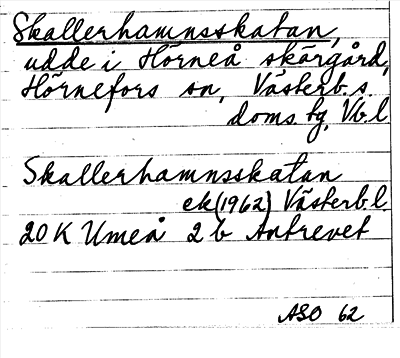 Skallerhamnsskatan,
udde i Hörneå skärgård,
Hörnefors sn, Västerb. s.
doms. tg, Vb. l
Skallerhamnsskatan
ek (1962) Västerb. l.
20 K Umeå 2 b Antrevet
ASO 62